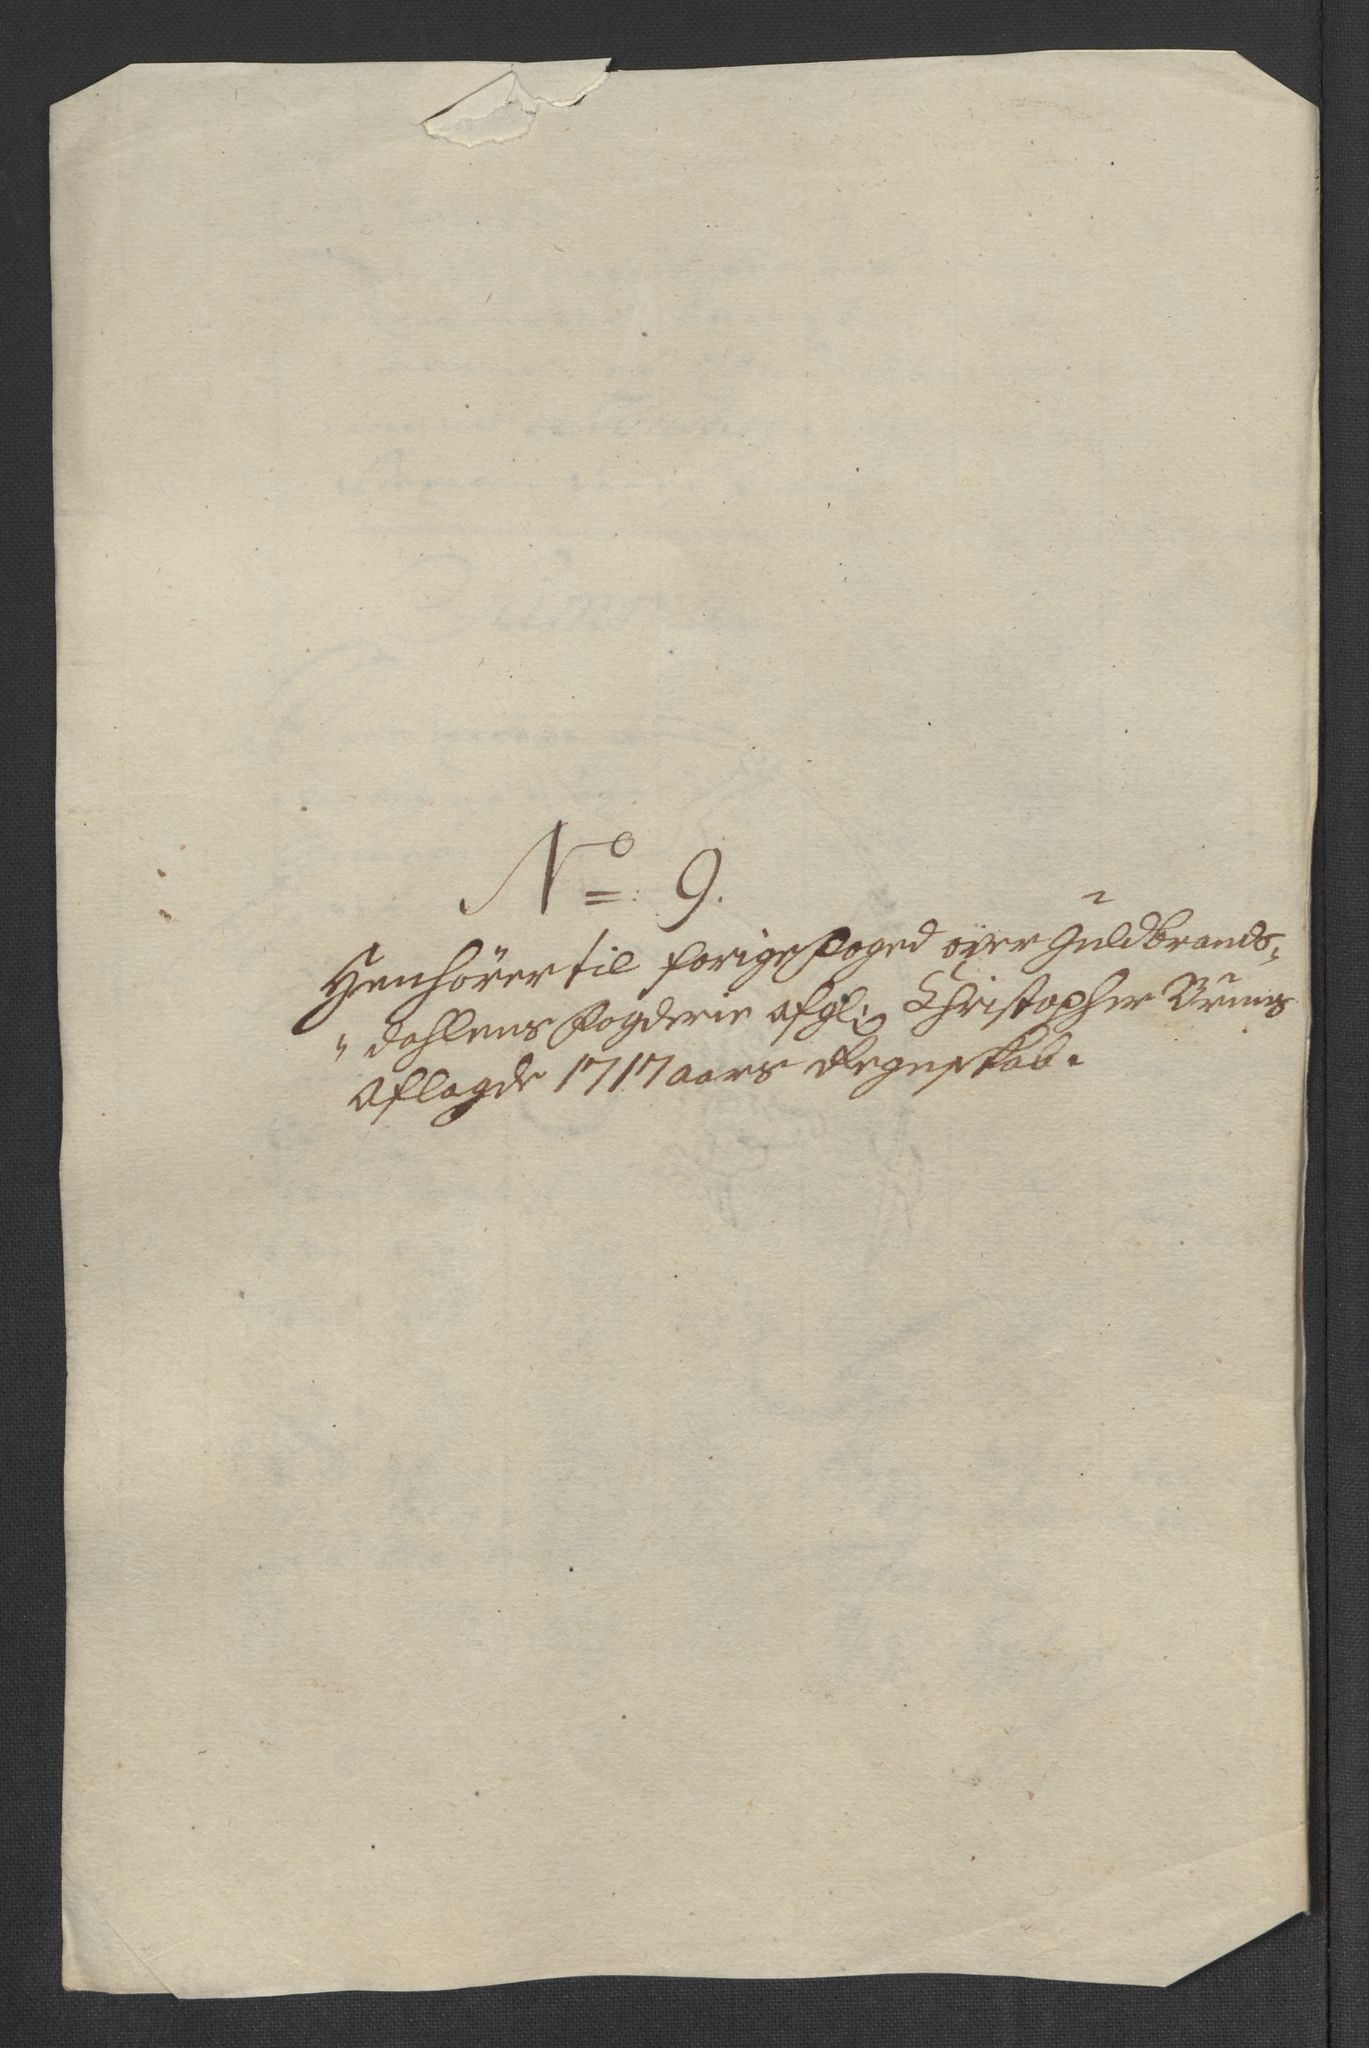 No: 9.
Henhörer til forige Foged over Guldbrands-
"dahlens Fogderie afgl: Christopher Bruuns
Aflagde 1717 aars Regenskab.